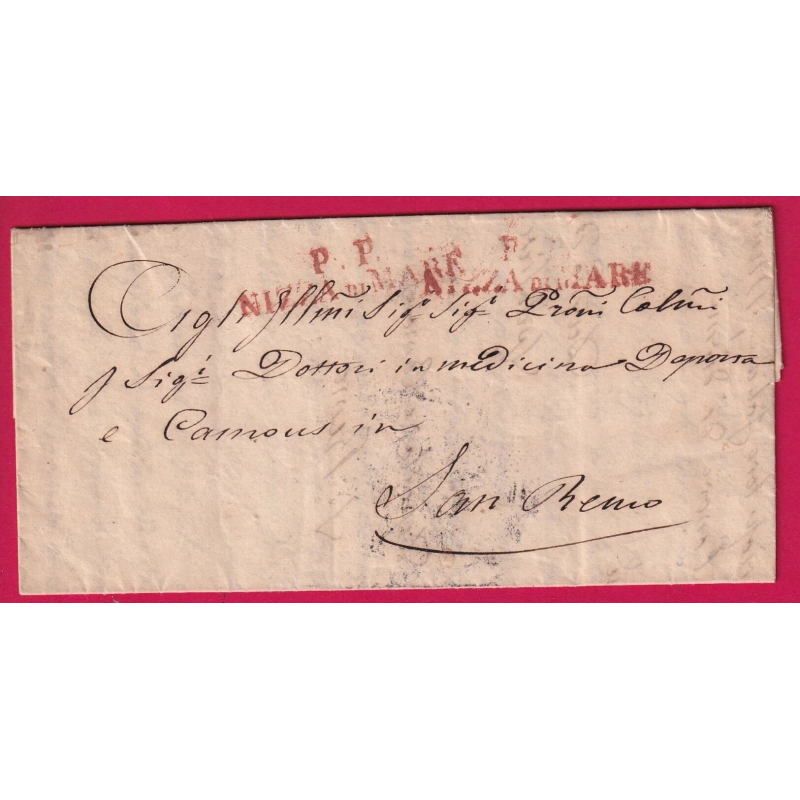 P. P.
NIZZA DI MARE
P.
NIZZA DI MARE
Agl' Illmi Sigri Sigri Proñi Colmi
J Sigri Dottori in medicina Deporra
e Camous in
San Remo